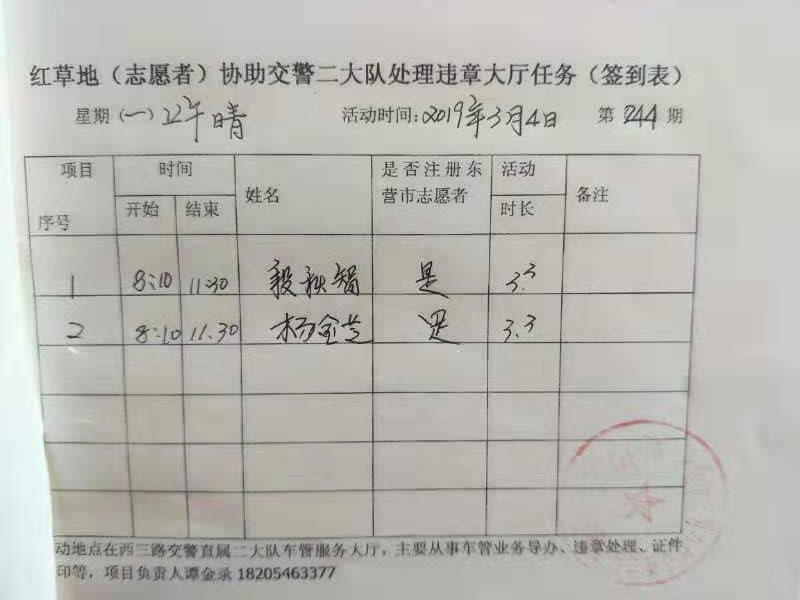 红草地（志愿者）协助交警二大队处理违章大厅任务（签到表）
星期（一）上午 晴 活动时间:2019年3月4日 第244期
项目 时间 姓名 是否注册东营市志愿者 活动时长 备注
序号 开始 结束
1 8:10 11:30 秋智 是 3.3
2 8:10 11.30 杨金芝 是 3.3
动地点在西三路交警直属二大队车管服务大厅，主要从事车管业务导办、违章处理、证件
印等，项目负责人谭金录 18205463377